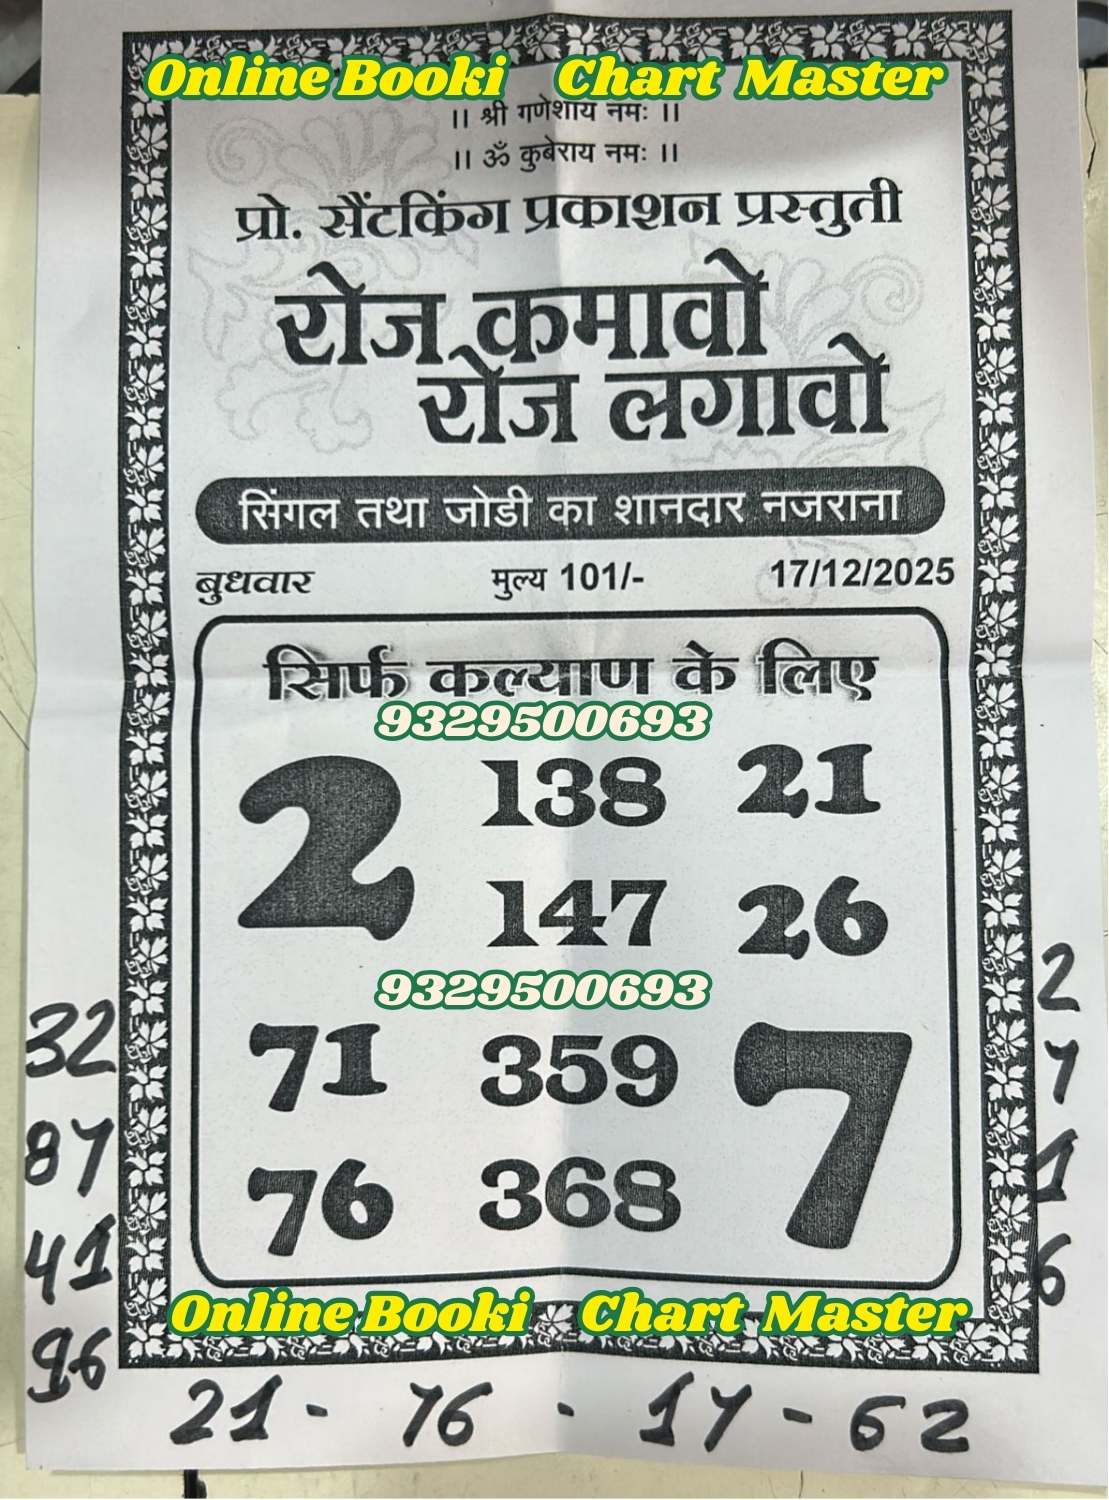 Online Booki Chart Master
।। श्री गणेशाय नमः ।।
।। ॐ कुबेराय नमः ।।
प्रो. सैंटकिंग प्रकाशन प्रस्तुती
रोज कमावो
रोज लगावो
सिंगल तथा जोडी का शानदार नजराना
बुधवार मुल्य 101/- 17/12/2025
सिर्फ कल्याण के लिए
9329500693
2 138 21
147 26
9329500693
71 359 7
76 368
32
87
41
96
2
7
1
6
Online Booki Chart Master
21 - 76 - 17 - 62